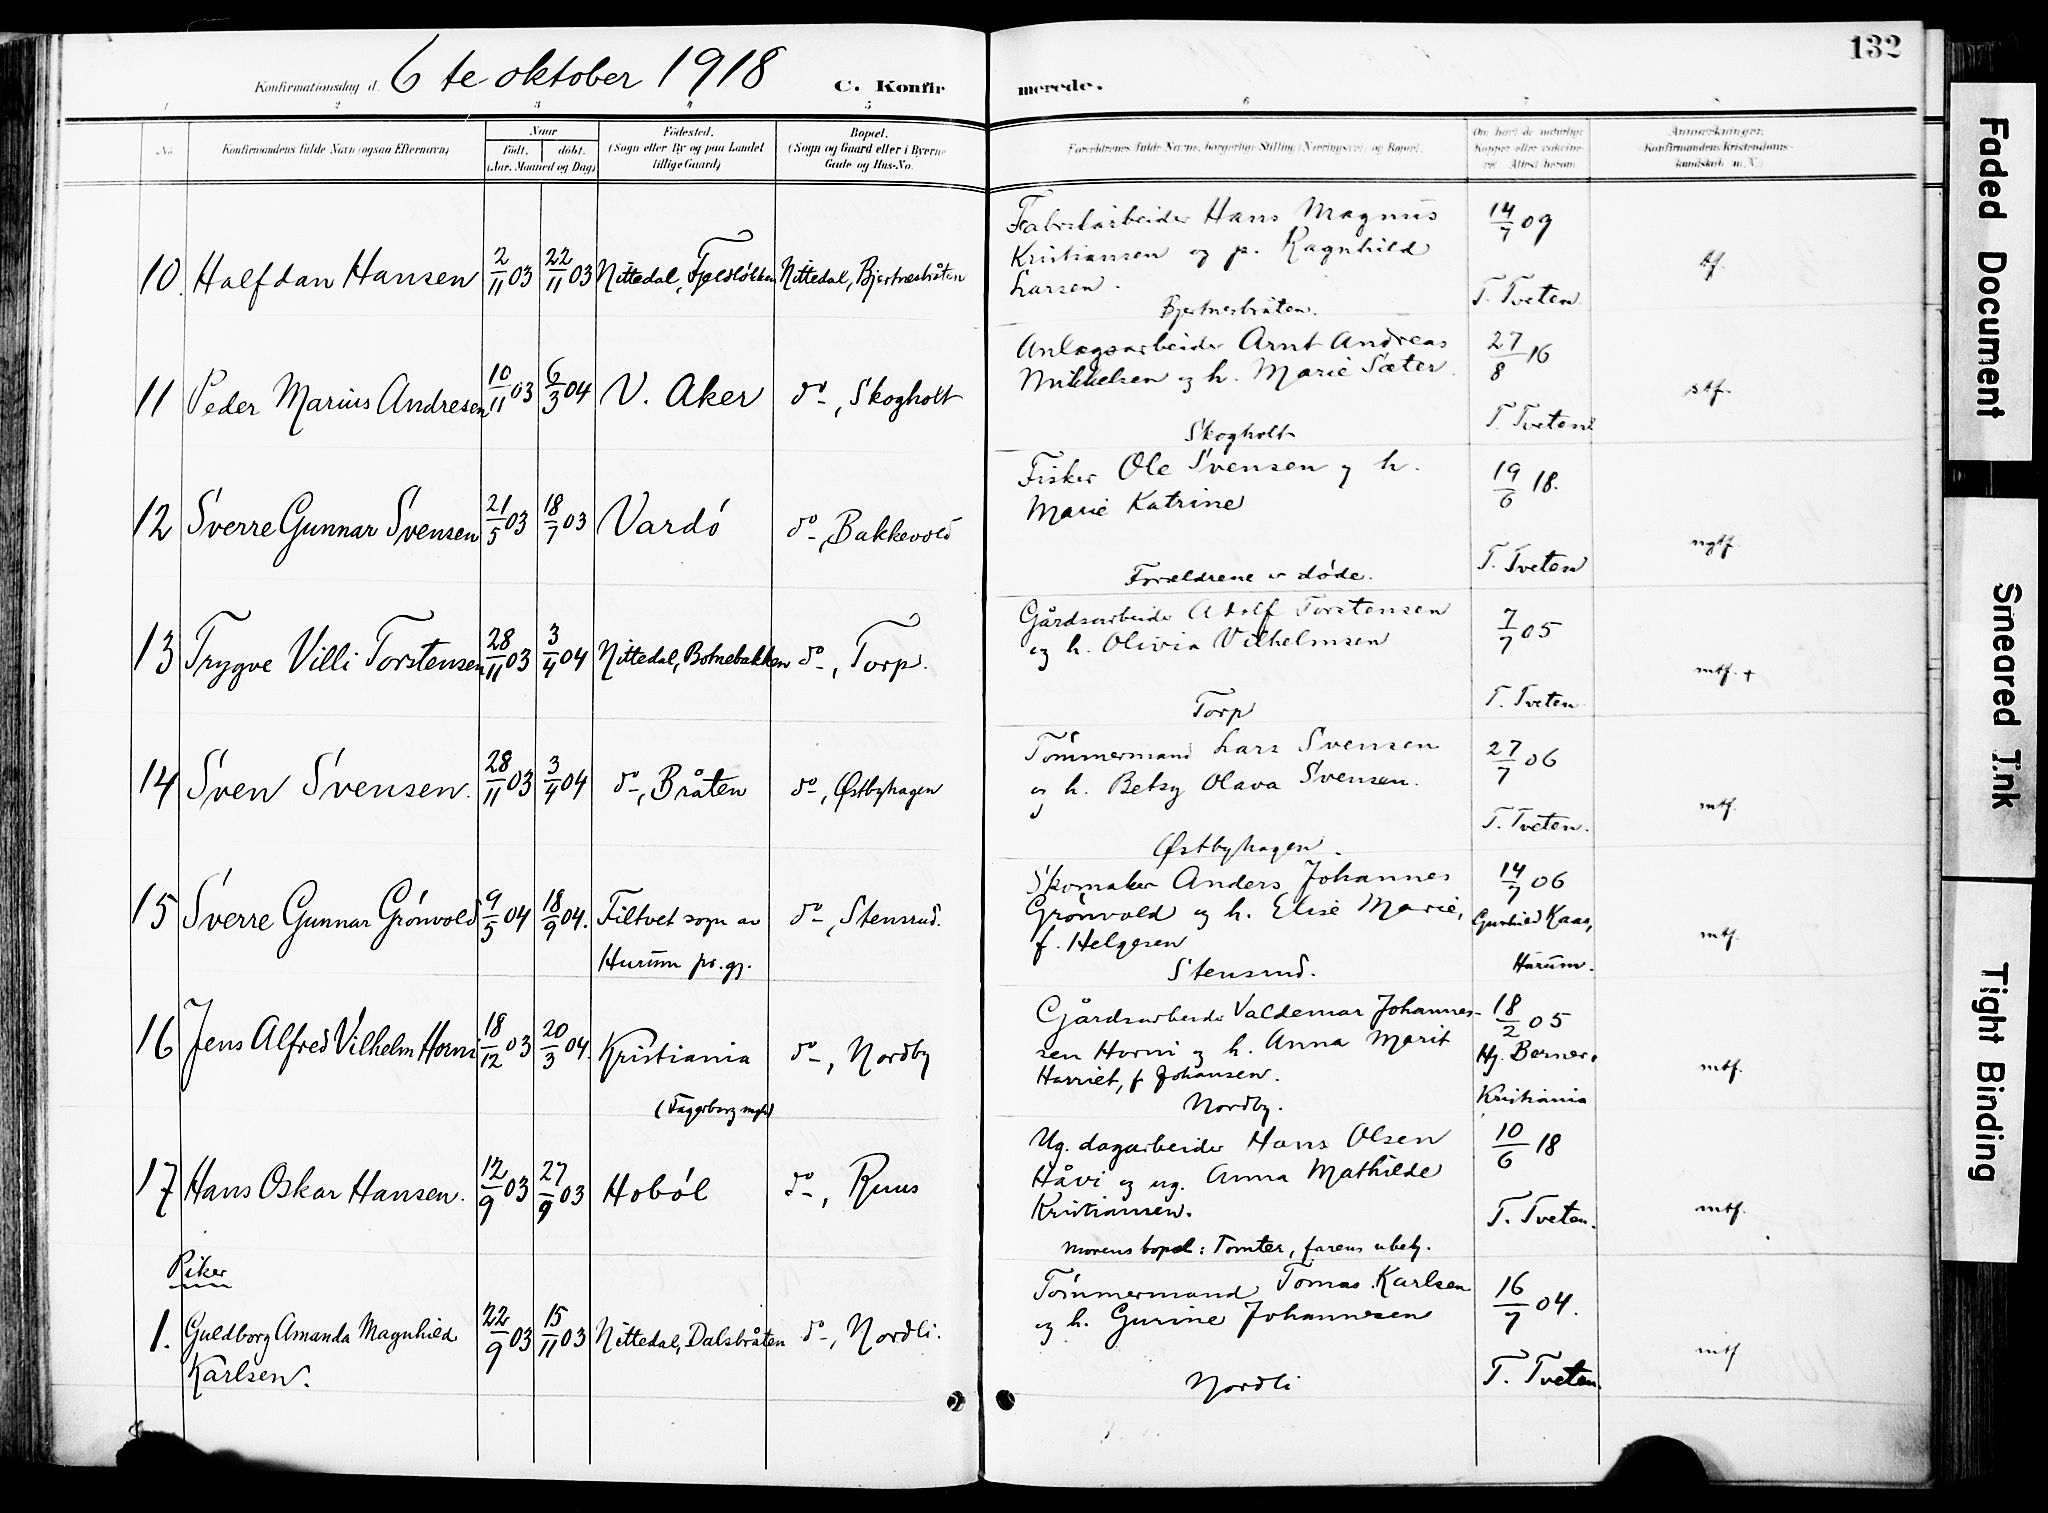 132
Konfirmationsdag d. 6 te oktober 1918
C. Konfirmerede.
1 2 3 4 5 6 7
No. Konfirmandens fulde Navn (ogsaa Efternavn)
Naar
Født. døbt.
(Aar. Maaned og Dag)
Fødested.
(Sogn eller By og paa Landet tillige Gaard)
Bopæl.
(Sogn og Gaard eller i Byerne Gade og Hus-No.
Forældrenes fulde Navne, borgerlige Stilling (Næringsvei) og Bopæl.
Om havt de naturlige Kopper eller vaccineret. Attest herom.
Anmærkninger.
(Konfirmandens Kristendomskundskab m. V.)
10. Halfdan Hansen 2/11 03 22/11 03 Nittedal, Fjeldløkken Nittedal, Bjertnesbråten
Fabrikarbeider Hans Magnus
Kristiansen og p. Ragnhild
Larsen.
Bjertnesbråten.
14/7 09
T. Tveten
tf.
11 Peder Marius Andresen 10/11 03 6/3 04 V. Aker do, Skogholt
Anlægsarbeider Arnt Andreas
Mikkelsen og h. Marie Sæter.
Skogholt
27/8 16
T. Tveten
stf.
12 Sverre Gunnar Svensen 21/5 03 18/7 03 Vardø do, Bakkevold
Fisker Ole Svensen og h.
Marie Katrine
Forældrene er døde.
19/6 18.
T. Tveten
ngtf.
13 Trygve Villi Torstensen 28/11 03 3/4 04 Nittedal, Botnebakken do, Torp.
Gårdsarbeider Adolf Torstensen
og h. Olivia Vilhelmsen
Torp
7/7 05
T. Tveten
mtf. +
14 Sven Svensen. 28/11 03 3/4 04 do, Bråten do, Østbyhagen
Tømmermand Lars Svensen
og h. Betsy Olava Svensen.
Østbyhagen.
27/7 06
T. Tveten.
mtf.
15 Sverre Gunnar Grønvold 9/5 04 18/9 04. Filtvet sogn av
Hurum pr. gj.
do, Stensrud.
Skomaker Anders Johannes
Grønvold og h. Elise Marie,
f. Helgesen
Stensrud.
14/7 06
Kaas,
Hurum.
mtf.
16 Jens Alfred Vilhelm Horni 18/12 03 20/3 04. Kristiania
(Fagerborg mght)
do, Nordby
Gårdsarbeider Valdemar Johannes-
sen Horni og h. Anna Marit
Harriet, f. Johansen.
Nordby.
18/2 05
Hj. Berner,
Kristiania
mtf.
17 Hans Oskar Hansen. 12/9 03 27/9 03 Hobøl do, Ruus
Ug. dagarbeider Hans Olsen
Håvi og ug. Anna Mathilde
Kristiansen.
Morens bopæl: Tomter, farens ubekj.
10/6 18
T. Tveten.
mtf.
Piker
1. Guldborg Amanda Magnhild
Karlsen.
22/9 03 15/11 03 Nittedal, Dalsbråten do, Nordli.
Tømmermand Tomas Karlsen
og h. Gurine Johannesen
Nordli
16/7 04.
T. Tveten.
mtf
Faded Document
Smeared Ink
Tight Binding